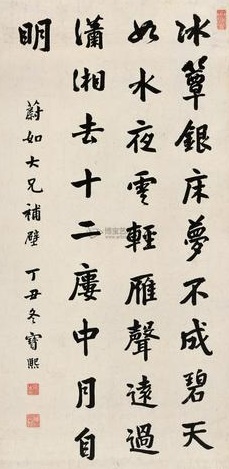 冰簟銀床夢不成碧天
如水夜雲輕雁聲遠過
瀟湘去十二廔中月自
明
蔚如大兄補壁 丁丑冬寶熙